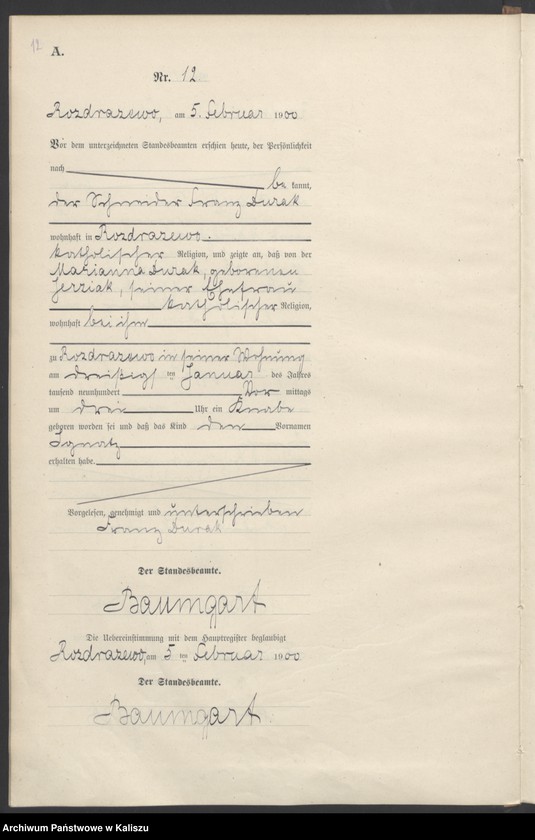 12
A.
Nr. 12
Rozdrazewo, am 5. Februar 1900
Vor dem unterzeichneten Standesbeamten erschien heute, der Persönlichkeit
nach
be kannt,
der Schneider Franz Durak
wohnhaft in Rozdrazewo.
katholischer Religion, und zeigte an, daß von der
Marianna Durak, geborenen
Jerziak, seiner Ehefrau
katholischer Religion,
wohnhaft bei ihm
zu Rozdrazewo in seiner Wohnung
am dreißigs ten Januar des Jahres
tausend neunhundert Vor mittags
um drei Uhr ein Knabe
geboren worden sei und daß das Kind den Vornamen
Ignatz
erhalten habe.
Vorgelesen, genehmigt und unterschrieben
Franz Durak
Der Standesbeamte.
Baumgart
Die Uebereinstimmung mit dem Hauptregister beglaubigt
Rozdrazewo, am 5 ten Februar 1900
Der Standesbeamte.
Baumgart
Archiwum Państwowe w Kaliszu